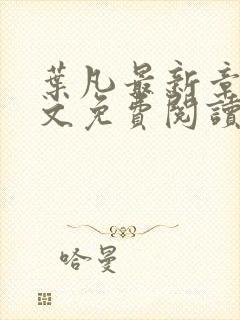 葉凡最新章
文免費閱讀
哈曼